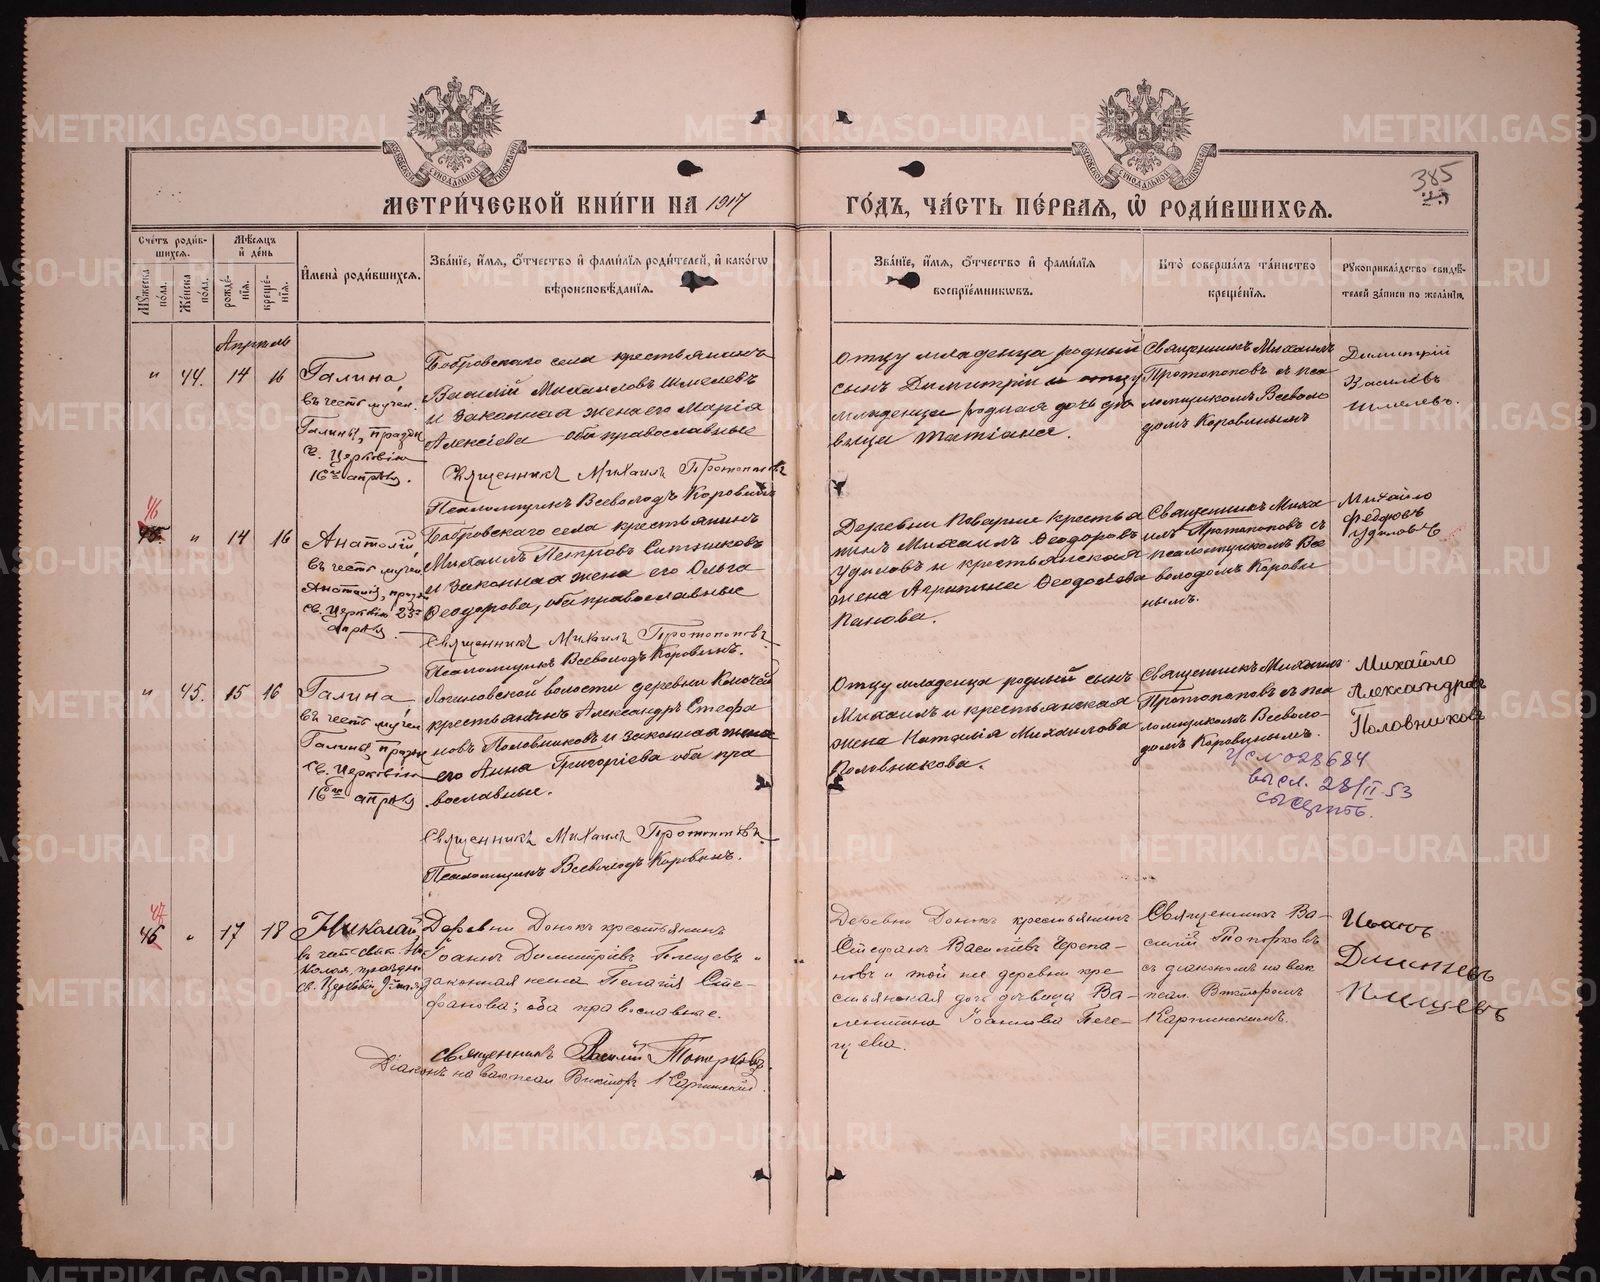 МЕТРИ́ЧЕСКОЙ КНИ́ГИ НА 1917
ГО́ДЪ, ЧА́СТЬ ПЕ́РВАѦ, Ѡ҆ РОДИ́ВШИХСѦ.
385
Сче́тъ роди́в-
шихсѧ.
Мѣ́сѧцъ
и҆ де́нь
Мꙋ́жеска
по́ла.
Же́нска
по́ла.
рожде́-
нїѧ.
креще́-
нїѧ.
И҆мена̀ роди́вшихсѧ.
Зва́нїе, и҆́мѧ, ѻ҆́тчество и҆ фами́лїѧ роди́телей, и҆ како́гѡ
вѣроисповѣ́данїѧ.
Зва́нїе, и҆́мѧ, ѻ҆́тчество и҆ фами́лїѧ
воспрїе́мникѡвъ.
Кто̀ соверша́лъ та́инство
креще́нїѧ.
Рꙋкоприкла́дство свидѣ́-
телей за́писи по жела́нїю.
Апрѣль
" 44. 14 16
Галина,
въ честь мучен.
Галины, праздн.
св. Церковію
16го апрѣля.
Бобровскаго села крестьянинъ
Василій Михаиловъ Шмелевъ
и законная жена его Марія
Алексіева оба православные
Священникъ Михаилъ Протопоповъ
Псаломщикъ Всеволодъ Коровинъ
Отцу младенца родный
сынъ Димитрій и отцу
младенца родная дочь дѣ
вица Татіана.
Священникъ Михаилъ
Протопоповъ съ пса
ломщикомъ Всеволо
домъ Коровинымъ
Димитрій
Василевъ
Шмелевъ.
46
45. " 14 16
Анатолій,
въ честь мучен
Анатолія, празд.
св. Церковію 23го
апрѣля.
Бобровскаго села крестьянинъ
Михаилъ Петровъ Ситниковъ
и законная жена его Ольга
Ѳеодорова, оба православные
Священникъ Михаилъ Протопоповъ
Псаломщикъ Всеволодъ Коровинъ.
Деревни Поварни крестья
нинъ Михаилъ Ѳеодоровъ
Удиловъ и крестьянская
жена Агрипина Ѳеодосіева
Панова.
Священникъ Миха
илъ Протопоповъ съ
псаломщикомъ Все
володомъ Корови
нымъ.
Михайло
Федоровъ
Удиловъ
" 45. 15 16
Галина
въ честь мучен
Галины праздн
св. Церковію
16го апрѣля
Логиновской волости деревни
крестьянинъ Александръ Стефа
новъ Половниковъ и законная жена
его Анна Григоріева оба пра
вославные.
Священникъ Михаилъ Протопоповъ
Псаломщикъ Всеволодъ Коровинъ.
Отцу младенца родный сынъ
Михаилъ и крестьянская
жена Наталія Михаилова
Половникова.
Священникъ Михаилъ
Протопоповъ съ пса
ломщикомъ Всеволо-
домъ Коровинымъ.
Михайло
Александровъ
Половниковъ
028684
высл. 28/II 53
47
46 " 17 18
Николай
въ честь свят. Ни
колая, праздн
св. Церковію 9 мая
Деревни Донокъ крестьянинъ
Іоаннъ Димитріевъ Плещевъ "
законная жена Пелагія Сте-
фанова; оба православные.
Священникъ Василій Топорковъ.
Діаконъ на вак. псал. Викторъ Карпинскій.
Деревни Донокъ крестьянинъ
Стефанъ Василіевъ Черепа-
новъ и той же деревни кре
стьянская дочь дѣвица Ва-
лентина Іоаннова
Священникъ Ва-
силій Топорковъ
съ діакономъ на вак
псал. Викторомъ
Карпинскимъ.
Иванъ
Плищевъ
METRIKI.GASO-URAL.RU